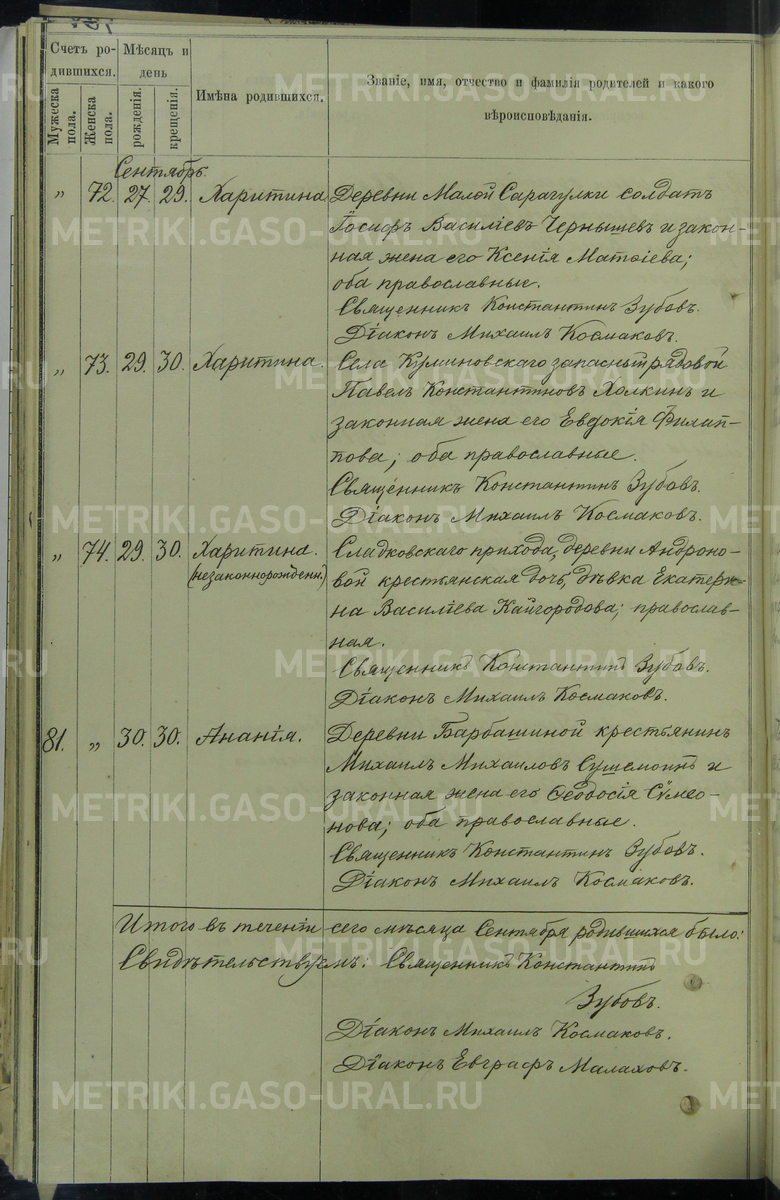 Счетъ ро-
дившихся.
Мѣсяцъ и
день
Мужеска
пола.
Женска
пола.
рожденія.
крещенія.
Имѣна родившихся.
Званіе, имя, отчество и фамилія родителей и какого
вѣроисповѣданія.
Сентябрь.
„ 72. 27. 29. Харитина Деревни Малой Сарагулки солдатъ
Іосифъ Василіевъ Чернышевъ и закон-
ная жена его Ксенія Матѳіева;
оба православные.
Священникъ Константинъ Зубовъ.
Діаконъ Михаилъ Космаковъ.
„ 73. 29. 30. Харитина. Села Куминовскаго запасный рядовой
Павелъ Константиновъ Холкинъ и
законная жена его Евдокія Филип-
пова; оба православные.
Священникъ Константинъ Зубовъ.
Діаконъ Михаилъ Космаковъ.
„ 74. 29. 30. Харитина. Сладковскаго прихода, деревни Андроно-
(незаконнорожденн.) вой крестьянская дочь, дѣвка Екатери-
на Василіева Кайгородова; православ-
ная.
Священникъ Константинъ Зубовъ.
Діаконъ Михаилъ Космаковъ.
81. „ 30. 30. Ананія. Деревни Барбашиной крестьянинъ
Михаилъ Михаиловъ и
законная жена его Ѳеодосія Сѵмео-
нова; оба православные.
Священникъ Константинъ Зубовъ.
Діаконъ Михаилъ Космаковъ.
Итого въ теченіи сего мѣсяца Сентября родившихся было:
Свидѣтельствуемъ: Священникъ Константинъ
Зубовъ.
Діаконъ Михаилъ Космаковъ.
Діаконъ Евграфъ Малаховъ.
METRIKI.GASO-URAL.RU